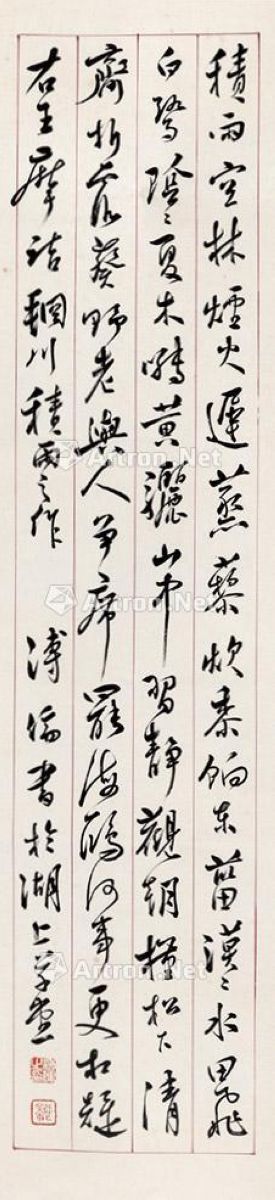 積雨空林煙火遲蒸藜炊黍餉東菑漠〻水田飛
白鷺陰〻夏木囀黃鸝山中習靜觀朝槿松下清
齋折露葵野老與人爭席罷海鷗何事更相疑
右王摩詰輞川積雨之作 溥儒書於湖上草堂
Artron.Net
Artron.Net
Artron.Net
Artron.Net
Artron.Net